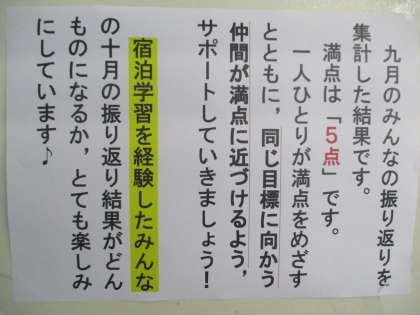 九月のみんなの振り返りを
集計した結果です。
満点は「５点」です。
一人ひとりが満点をめざす
とともに，同じ目標に向かう
仲間が満点に近づけるよう，
サポートしていきましょう！
宿泊学習を経験したみんな
の十月の振り返り結果がどん
ものになるか，とても楽しみ
にしています♪